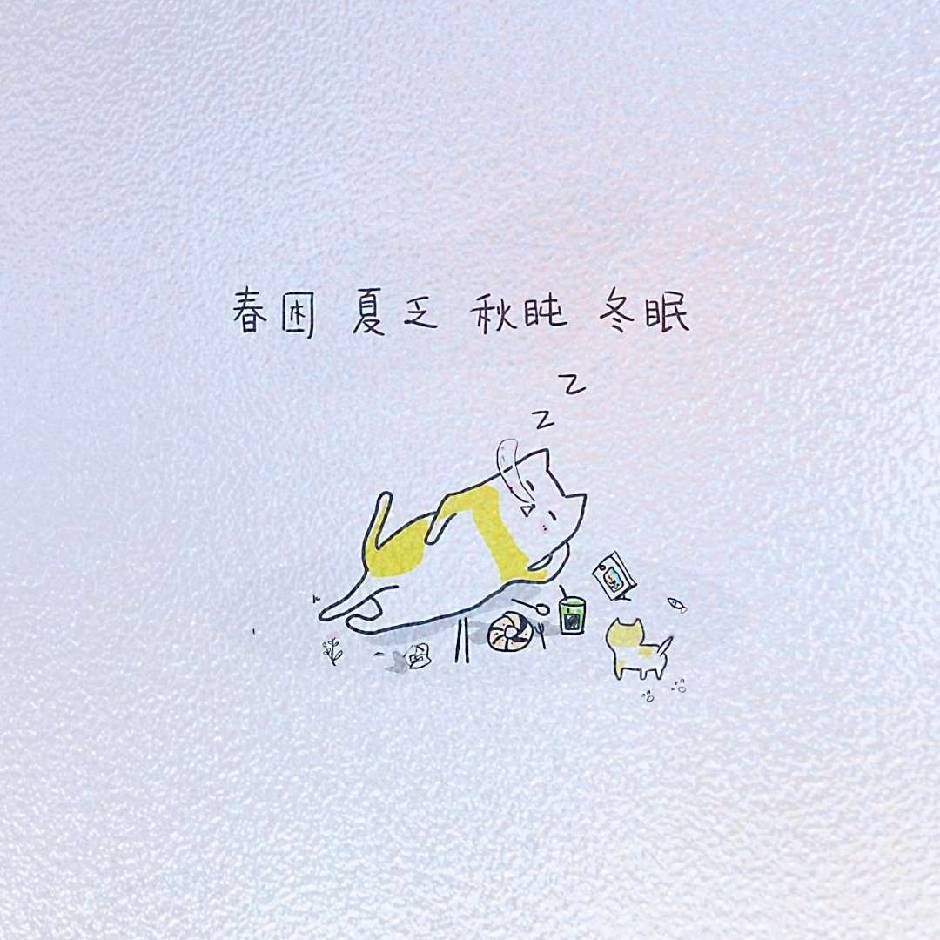 春困 夏乏 秋盹 冬眠
z
z